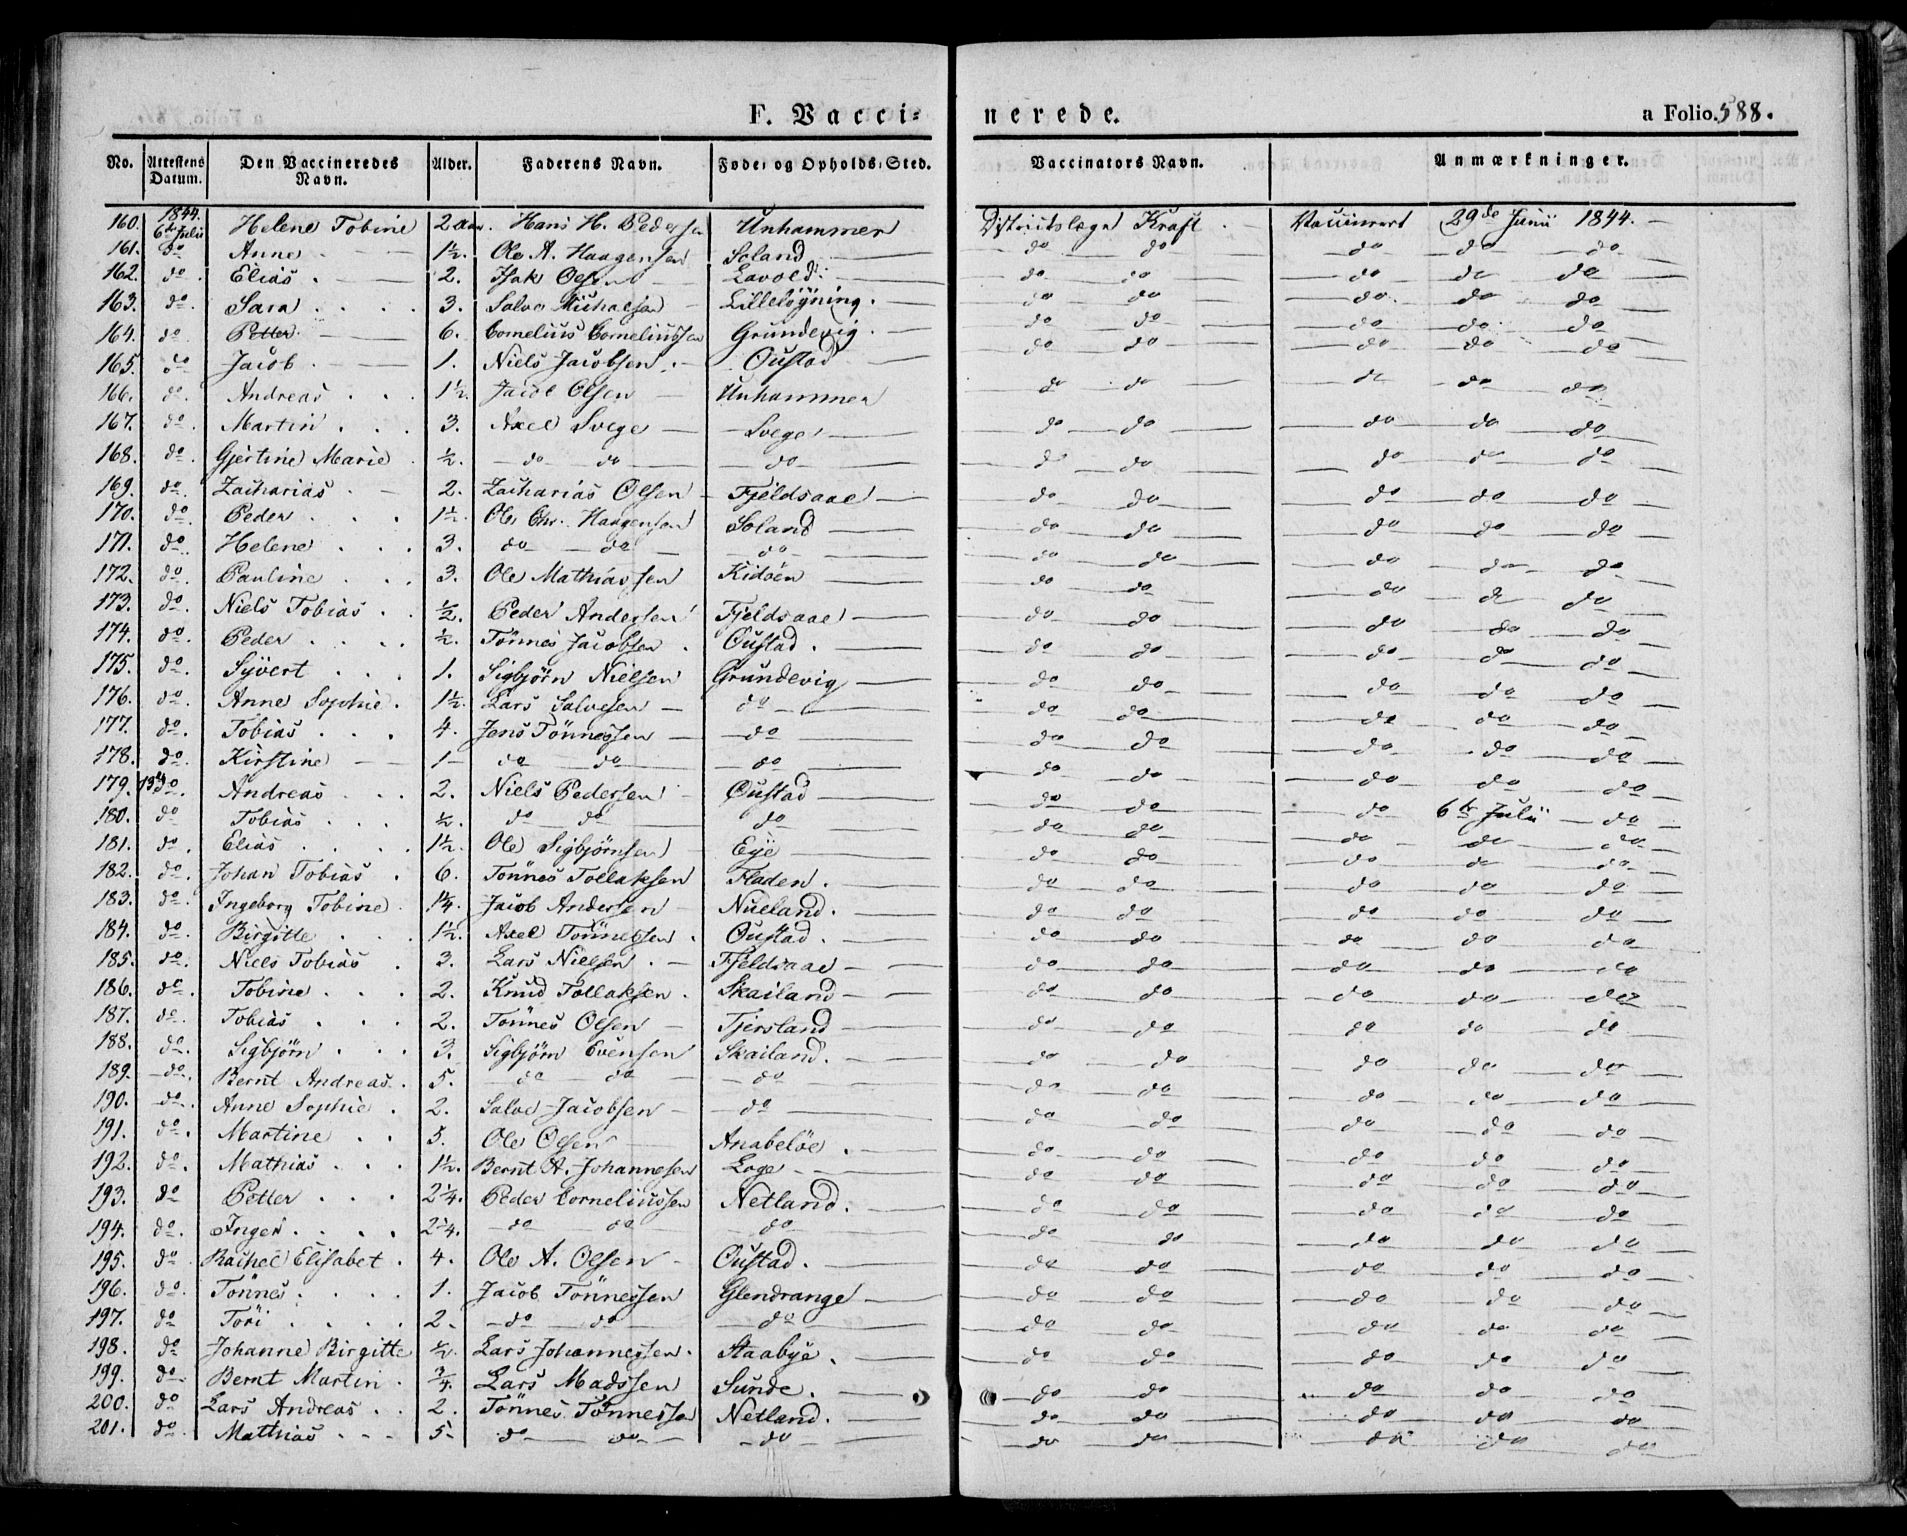 F. Vacci= nerede. a Folio. 588.
No. Attestens Datum. Den Vaccineredes Navn. Alder. Faderens Navn. Føde= og Opholds=Sted. Vaccinators Navn. Anmærkninger.
160. 1844. 6te Julii Helene Tobine 2 Aar. Hans H. Pedersen Unhammer Districtslæge Kraft Vaccineret 29de Junii 1844.
161. do Anne 1½. Ole A. Haagensen Soland do do do do do
162. do Elias 2. Isak Olsen Lavold do do do do do
163. do Sara 3. Salve Michaelsen Lilleløgning. do do do do do
164. do Petter 6. Cornelius Corneliussen Grundevig. do do do do do
165. do Jacob 1. Niels Jacobsen Oustad do do do do do
166. do Andreas 1½. Jacob Olsen Unhammer do do do do do
167. do Martin 3. Axel Svege Svege do do do do do
168. do Gjertine Marie ½. do do do do do do do do
169. do Zacharias 2. Zacharias Olsen Fjeldsaae do do do do do
170. do Peder 1½. Ole Chr. Haagensen Soland do do do do do
171. do Helene 3. do do do do do do do do
172. do Pauline 3. Ole Mathiassen Kidöen do do do do do
173. do Niels Tobias ½. Peder Andersen Fjeldsaae do do do do do
174. do Peder ½. Tönnes Jacobsen Oustad. do do do do do
175. do Syvert 1. Sigbjörn Nielsen Grundevig do do do do do
176. do Anne Sophie 1½. Lars Salvesen do do do do do do
177. do Tobias 4. Jens Tönnessen do do do do do do
178. do Kirstine 1 do do do do do do do do
179. 13de do Andreas 2. Niels Pedersen Oustad do do do do do
180. do Tobias ½. do do do do do do 6te Julii do
181. do Elias 1½. Ole Sigbjørnsen Eye do do do do do
182. do Johan Tobias 6. Tönnes Tollaksen Fladen. do do do do do
183. do Ingeborg Tobine 1¼. Jacob Andersen Nueland. do do do do do
184. do Birgitte 1½. Axel Tönnessen Oustad. do do do do do
185. do Niels Tobias 3. Lars Nielsen Fjeldsaae do do do do do
186. do Tobine 2. Knud Tollaksen Skailand do do do do do
187. do Tobias 2. Tönnes Olsen Tjersland do do do do do
188. do Sigbjörn 3. Sigbjörn Evensen Skailand. do do do do do
189. do Bernt Andreas 5. do do do do do do do do
190. do Anne Sophie 2. Salve Jacobsen do do do do do do
191. do Martine 5. Ole Olsen Anabelöe do do do do do
192. do Mathias 1½. Bernt A. Johannesen Loge do do do do do
193. do Petter 2¼. Peder Corneliussen Netland. do do do do do
194. do Inger 2¼. do do do do do do do do
195. do Rachel Elisabet 4. Ole A. Olsen Oustad. do do do do do
196. do Tönnes 1. Jacob Tönnessen Glendrange do do do do do
197. do Töri 2. do do do do do do do do
198. do Johanne Birgitte ½. Lars Johannessen. Staabye. do do do do do
199. do Bernt Martin ¾. Lars Madssen Sunde. do do do do do
200. do Lars Andreas 2. Tönnes Tönnessen Netland. do do do do do
201. do Mathias 5 do do do do do do do do